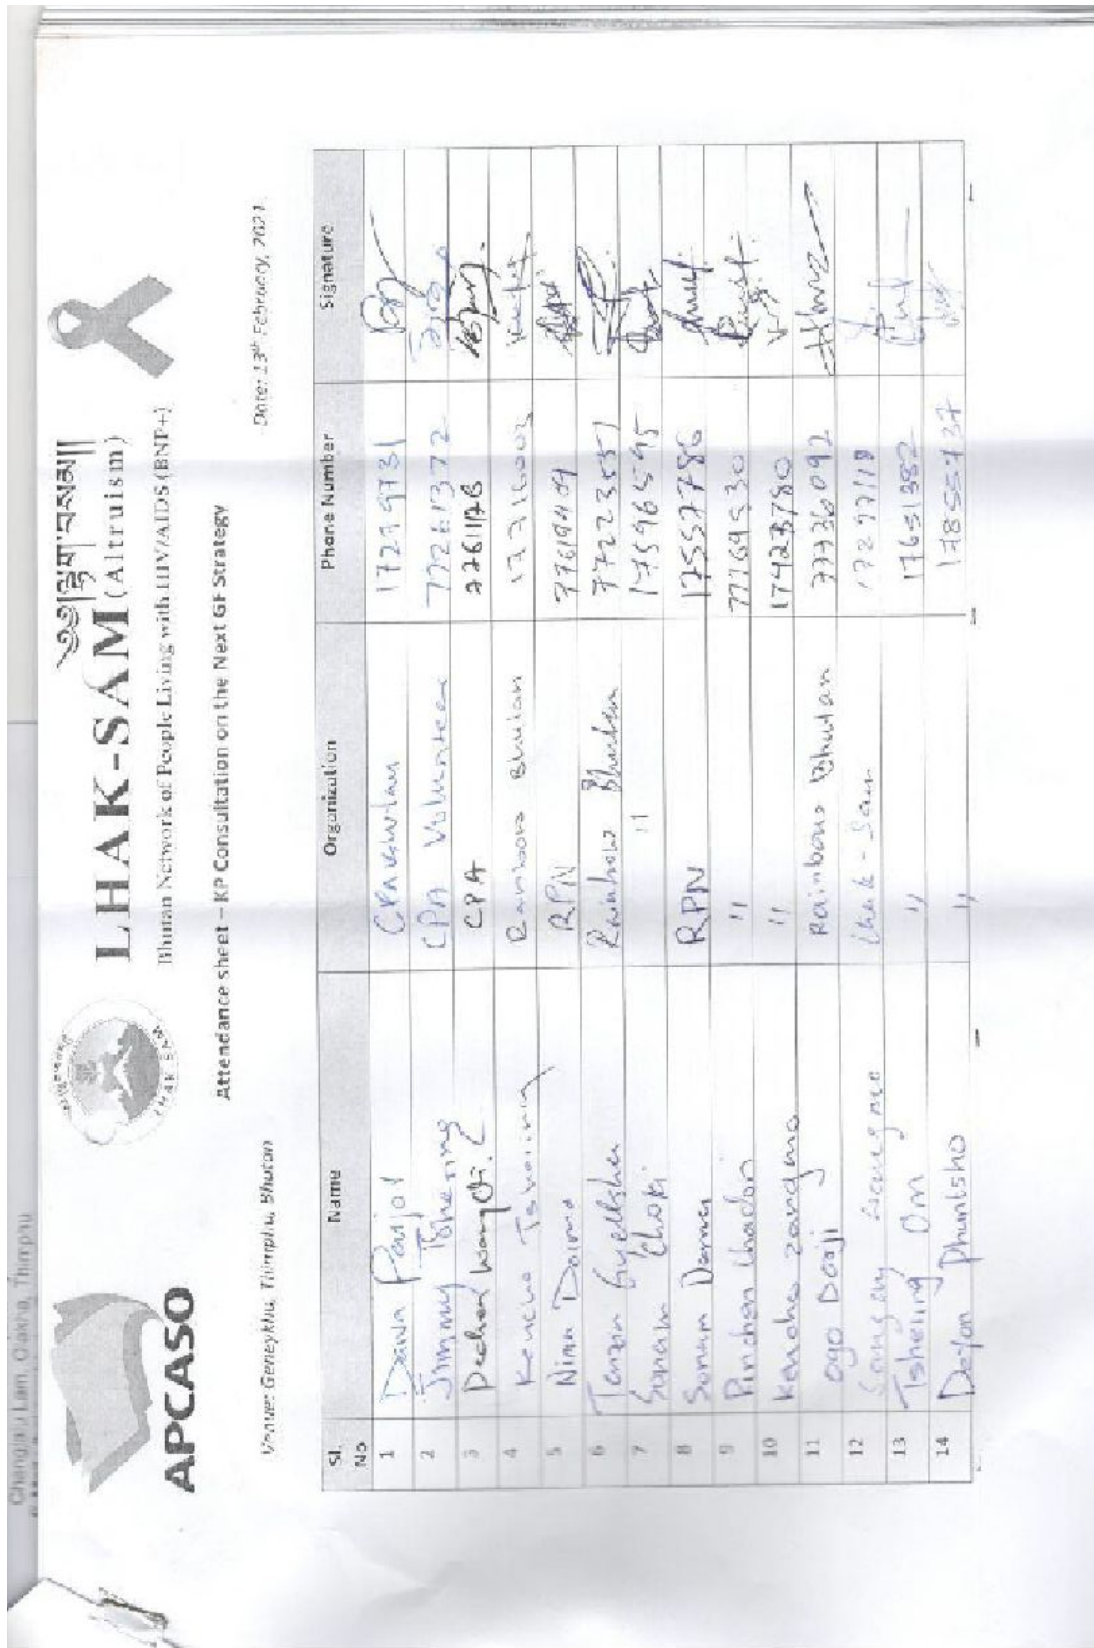 Changlu Lam, Thimphu
APCASO
LHAK-SAM
༄༅།ལྷག་བསམ།།
LHAK-SAM (Altruism)
Bhutan Network of People Living with HIV/AIDS (BNP+)
Attendance sheet – KP Consultation on the Next GF Strategy
Venue: Geneykha, Thimphu, Bhutan Date: 13th February, 2021
Sl. No Name Organization Phone Number Signature
1 Dawa 1729973
2 Jimmy Tshering CPA Volunteer 77261372
3 Dechen CPA
4 Tshering Rainbow Bhutan
5 Nima Dolma RPN
6 Tenzin Gyeltshen Rainbow Bhutan 77223551
7 Sonam Choki " 17596595
8 Sonam RPN 17557786
9 Rinchen Chadon " 77769530
10 Zangmo " 17423780
11 Dorji Rainbow Bhutan 77736092
12 Sangay Wangmo Lhak-Sam
13 Tshering Om " 17651382
14 Phuntsho " 17855937